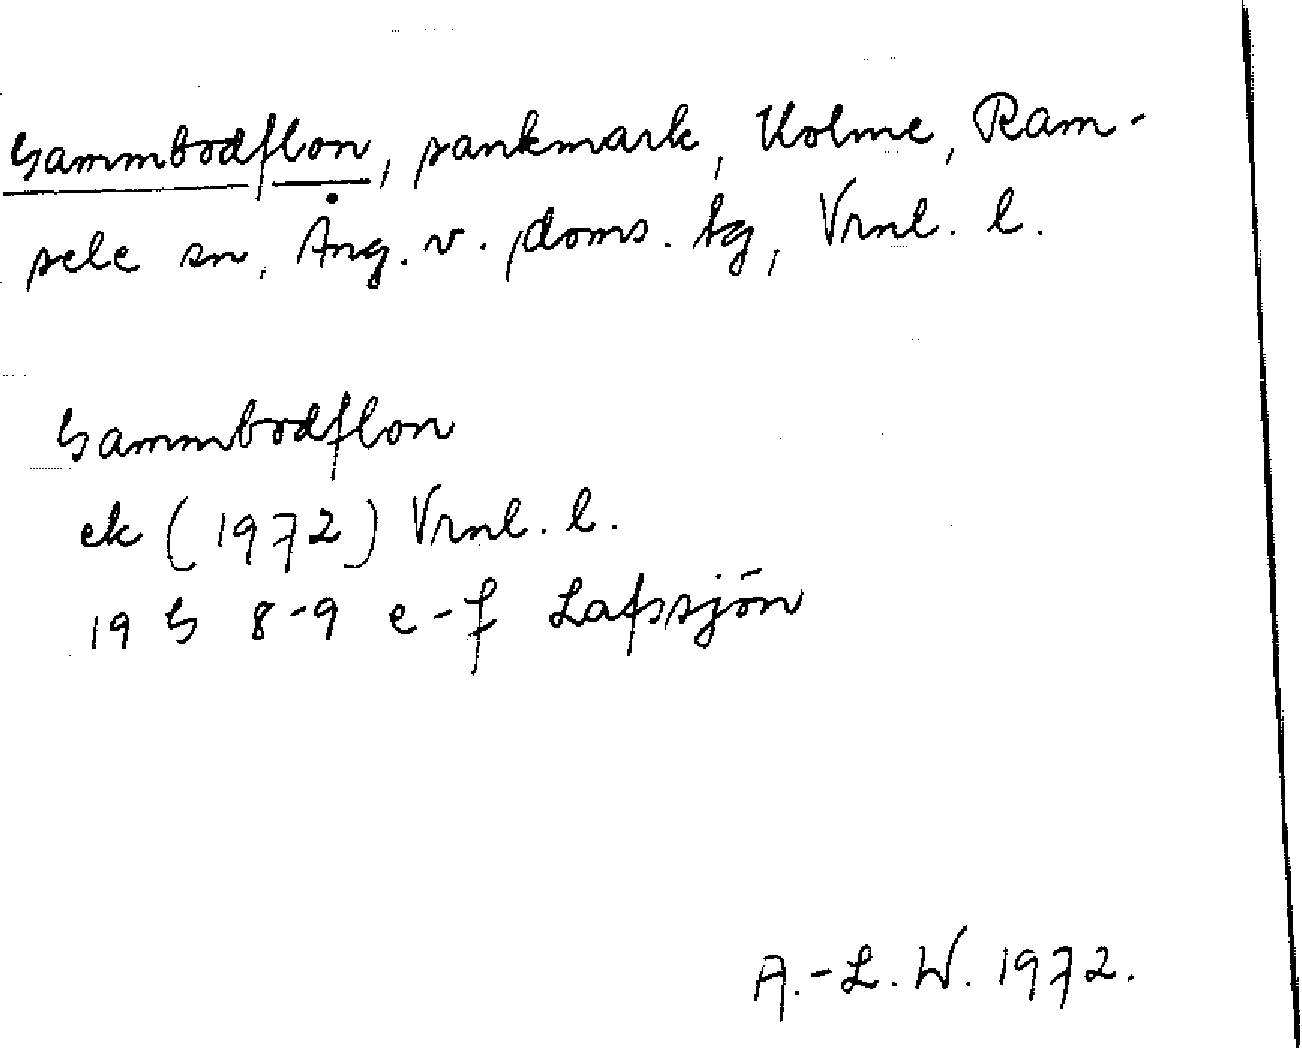 Gammbodflon, sankmark, Holme, Ram-
sele sn, Ång. v. doms. tg, Vrnl. l.
Gammbodflon
ek (1972) Vrnl. l.
19 G 8-9 e-f Lafssjön
A.-L. W. 1972.